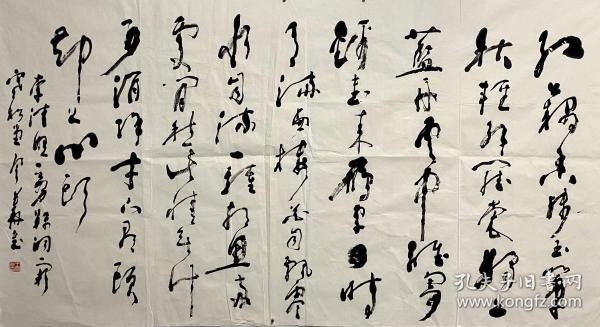 红藕香残玉簟
秋轻解罗裳独上
蘭舟雲中谁寄
錦書来雁字回时
月满西楼花自飘零
水自流一種相思两
處闲愁此情无计
可消除才下眉头
却上心头
李清照
孔夫子旧书网
www.kongfz.com